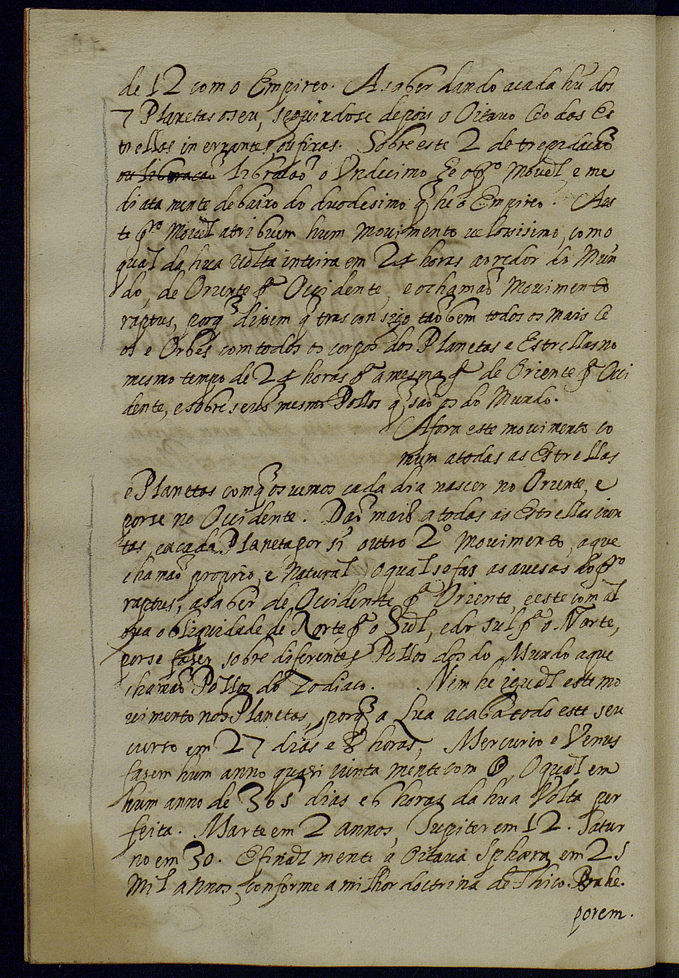 de 12 com o Empireo. A saber dando a cada hũ dos
7 Planetas o seu, seguindose depois o Oitauo Ceo das Es
trellas inerrantes ou fixas. Sobre este 2 de trepidacaõ
ou libracaõ libracaõ o Undecimo he o pr.º Mouel, e me
diatamente debaixo do duodesimo q̃ he o Empireo. A es
te pr.º Mouel atribuem hum mouimento uelosissimo, com o
qual da hua uolta inteira em 24 horas ao redor do Mun
do, de Oriente p.ª Occidente, e o chamaõ Mouimento
raptus, porq̃ dizem q̃ tras consigo taõbem todos os mais Ce
os e Orbes com todos os corpos dos Planetas e Estrellas no
mesmo tempo de 24 horas p.ª a mesma p.te de Oriente p.ª Occi
dente, e sobre seus mesmos Pollos q̃ saõ os do Mundo.
Afora este mouimento co
mum a todas as Estrellas
e Planetas com q̃ os uemos cada dia nascer no Oriente, e
porse no Occidente. Daõ mais a todas as Estrellas iun
tas, e a cada Planeta por si outro 2º mouimento, a que
chamaõ proprio, e Natural o qual se fas as auesas do pr.º
raptus, a saber de Occidente p.ª Oriente, e este com al
gua obliquidade de Norte p.ª o Sul, e do Sul p.ª o Norte,
por se fazer sobre diferentes Pollos dos do Mundo a que
chamaõ Pollos do Zodiaco. Nem he igual este mo
uimento nos Planetas, porq̃ a Lua acaba todo este seu
curso em 27 dias e 8 horas, Mercurio e Venus
fazem hum anno quasi iuntamente com o ☉, O qual em
hum anno de 365 dias e 6 horas da hua Volta per
feita. Marte em 2 annos, Jupiter em 12. Satur
no em 30. E finalmente a Oitaua Sphæra em 25
Mil annos, conforme a milhor doctrina de Thico Brahe.
porem.